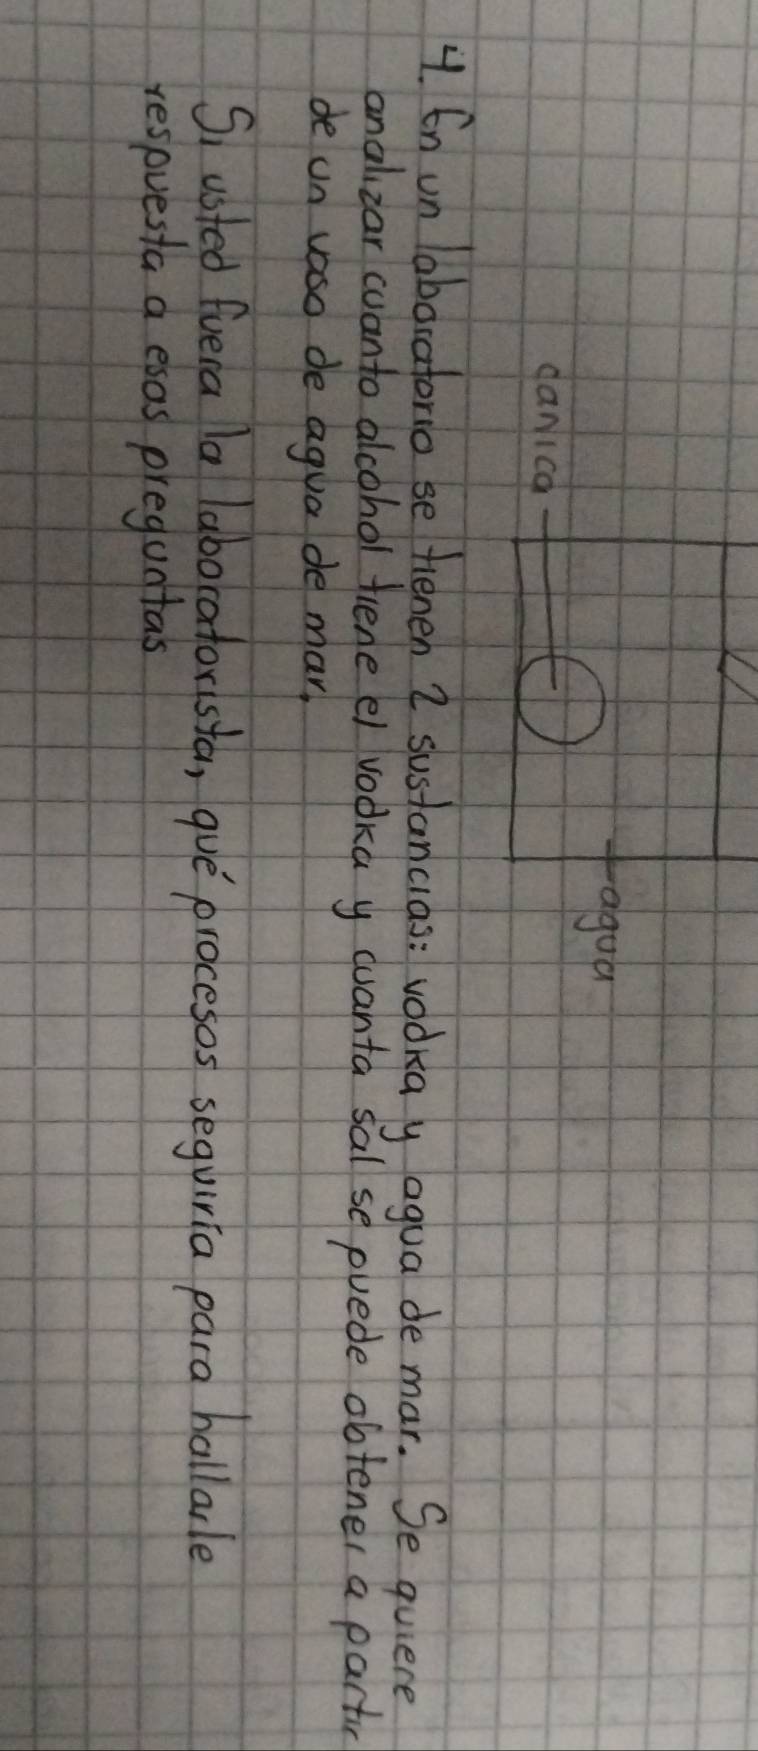 canica
agua
4. En un laboratorio se tienen 2 sustancias: vodka y agua de mar. Se quiere
analizar cuanto alcohol tiene el vodka y cuanta sal se puede obtener a partir
de un vaso de agua de mar,
Si usted fuera la laboratorista, qué procesos seguiría para hallarle
respuesta a esas preguntas